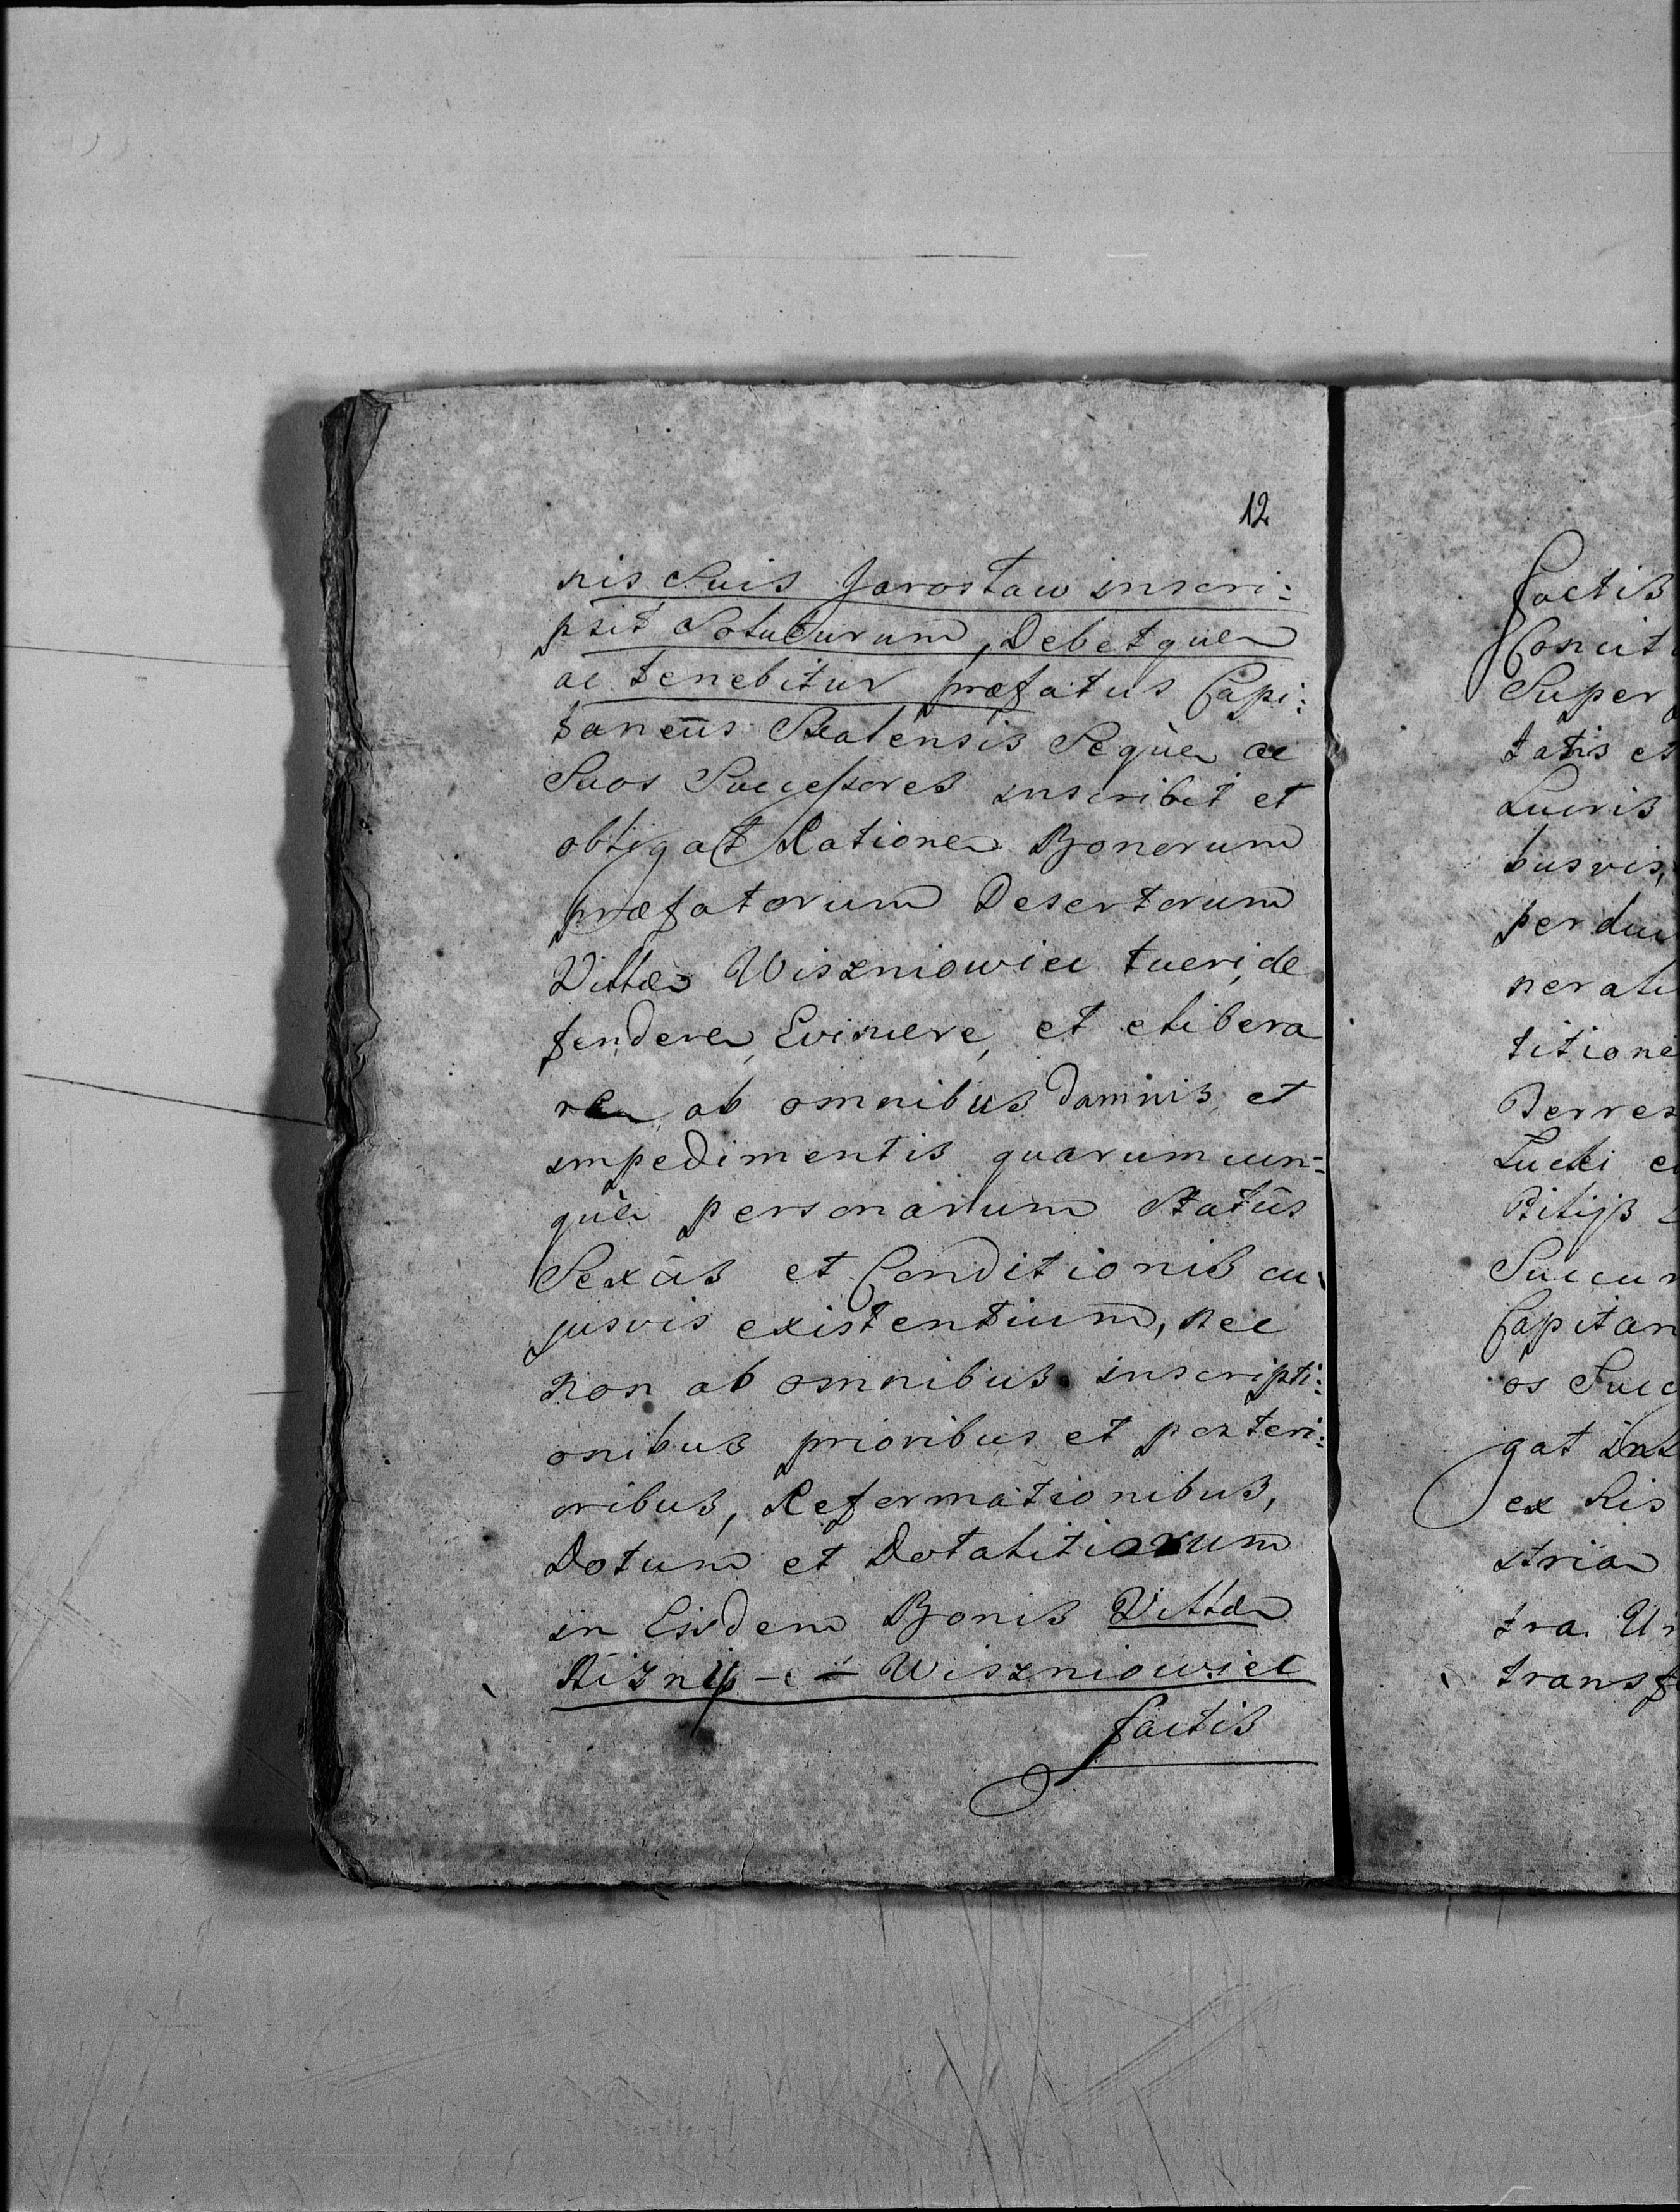 12
nis Suis Jarosław inscri:
psit Soluturum, Debetque
ac tenebitur præfatus Capi:
taneus Seque ac
Suos Successores inscribit et
obligat Ratione Bonorum
præfatorum Desertorum
Villæ Wiszniowiec tueri, de
fendere, Evincere, et elibera
re ab omnibus damnis et
impedimentis quarumcun=
que personarum Statûs
Sexûs et Conditionis cu
jusvis existentium, nec
non ab omnibus inscripti:
onibus prioribus et posteri:
oribus, Reformationibus,
Dotum et Dotalitiorum
in Eisdem Bonis Villæ
Wiszniowiec
factis
factis
Super
tatis et
Lucris
busvis,
titione
Capitan
os Succ
gat
ex
tra